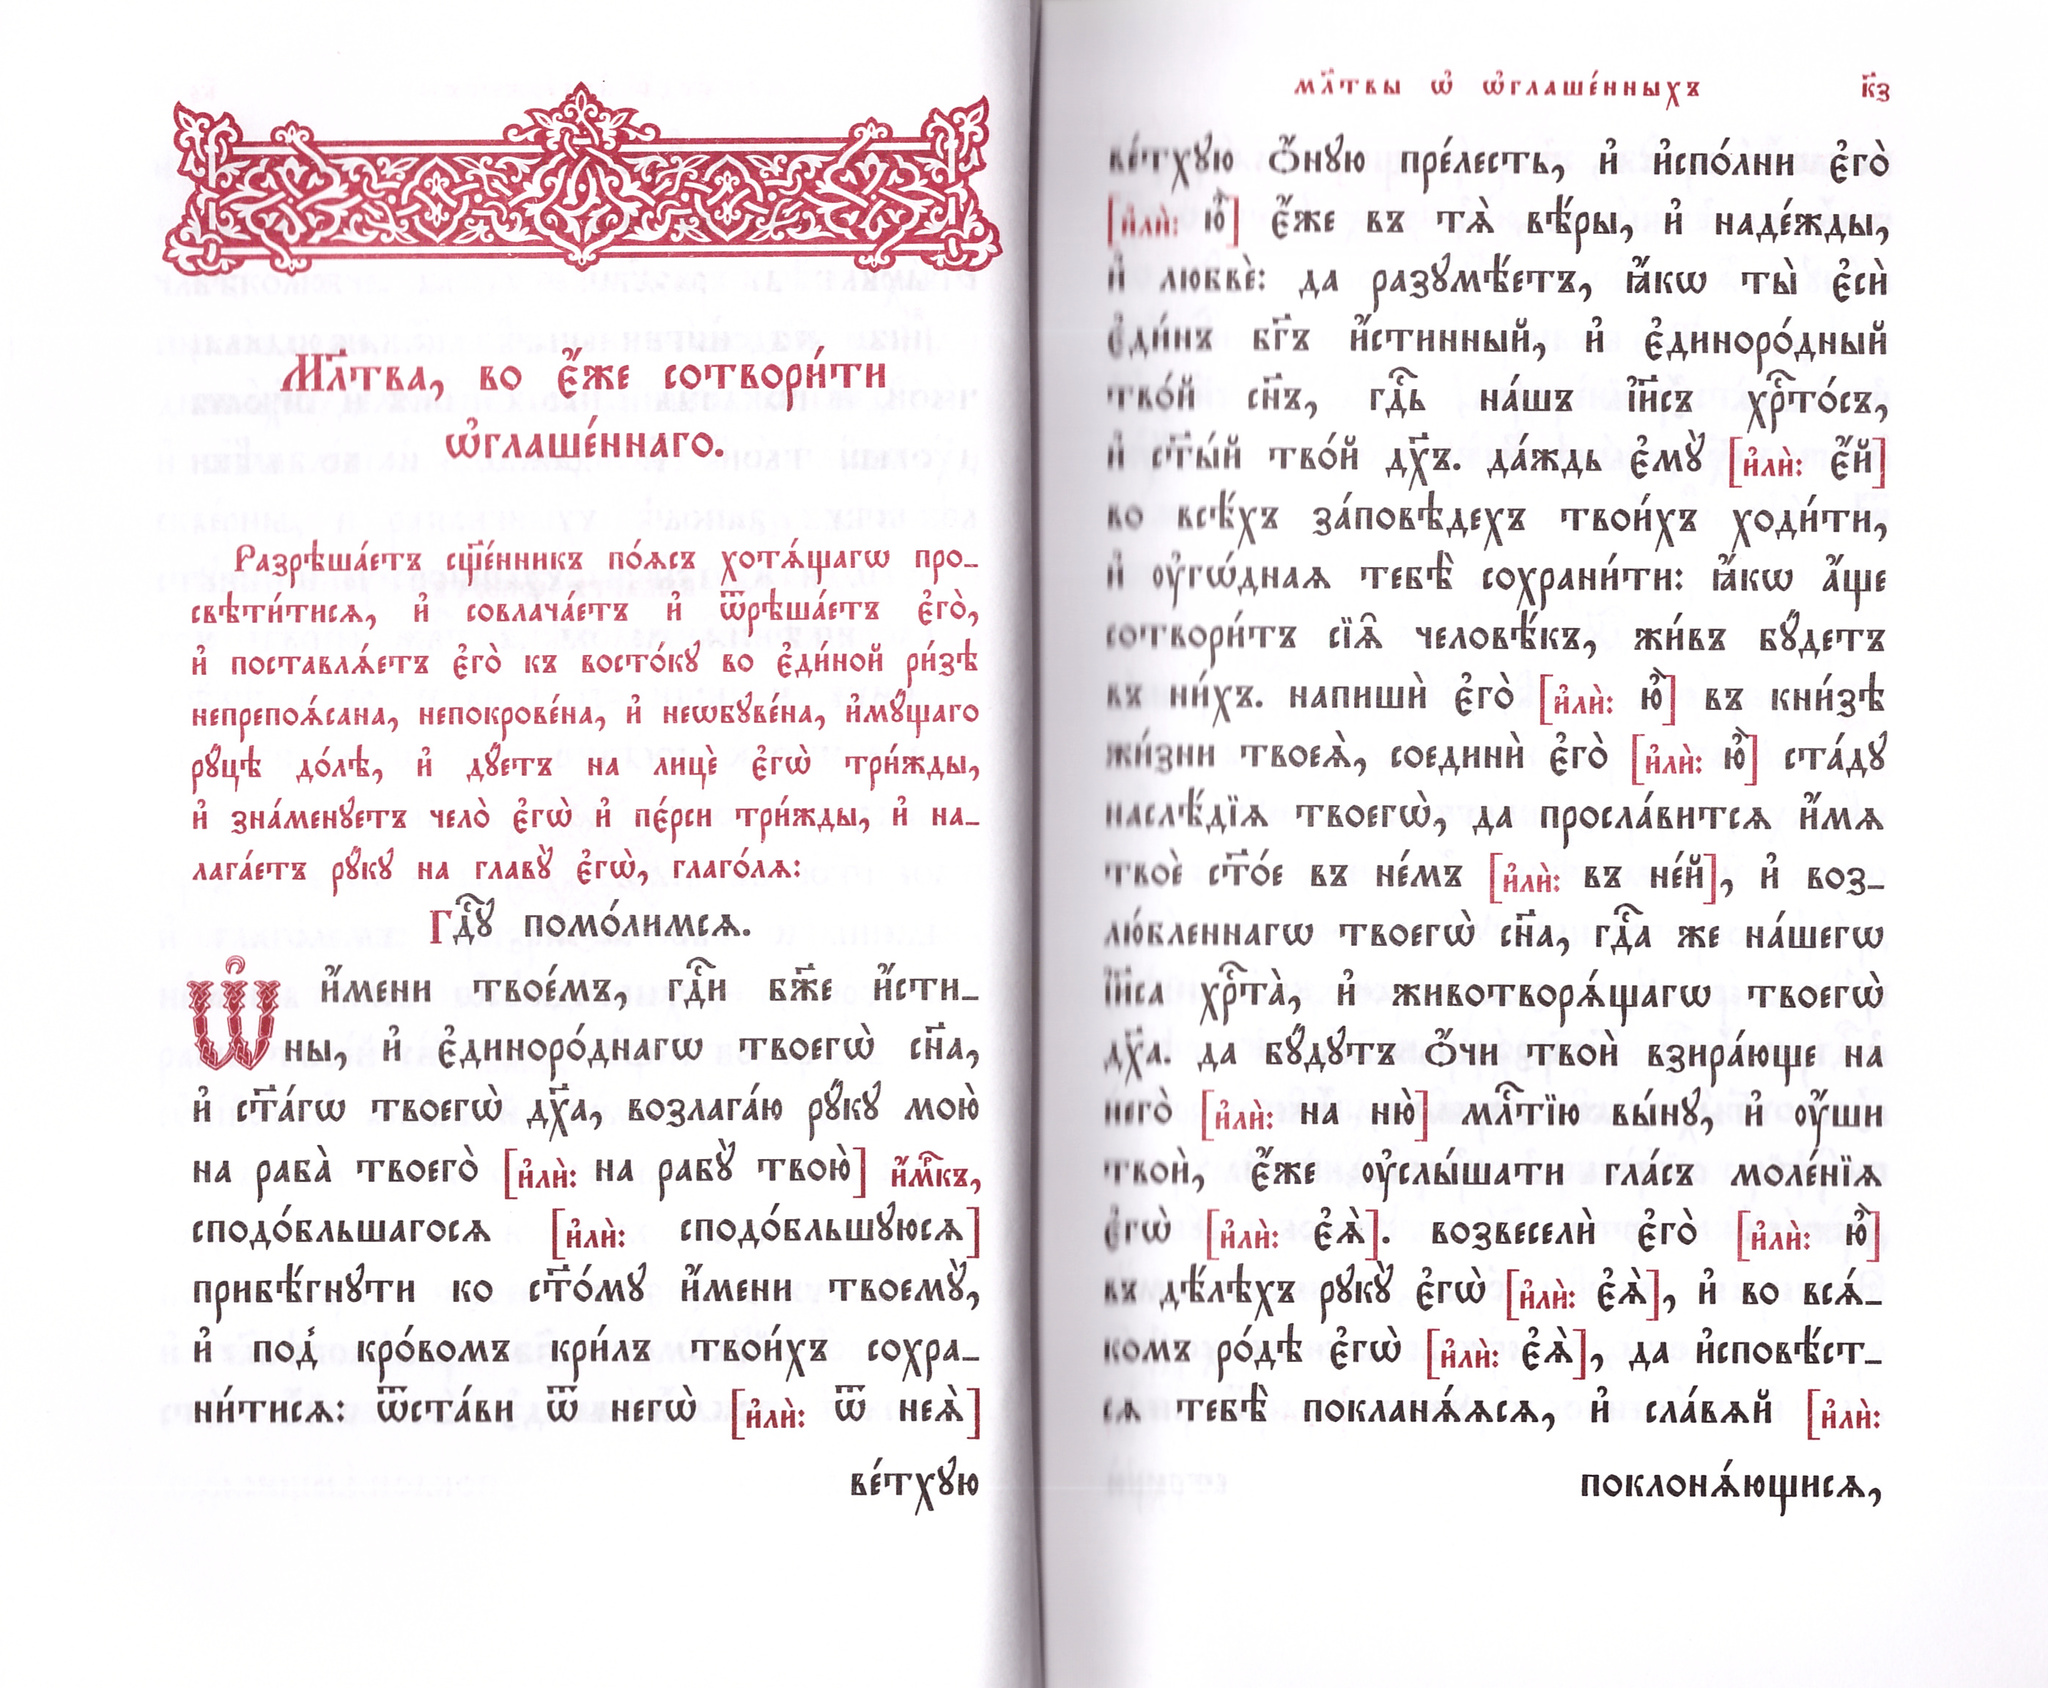 Мл҃тва, во є҆́же сотвори́ти
ѡ҆глаше́ннаго.
Разрѣша́етъ сщ҃е́нникъ по́ѧсъ хотѧ́щагѡ про_
свѣти́тисѧ, и҆ совлача́етъ и҆ ѿрѣша́етъ є҆го̀,
и҆ поставлѧ́етъ є҆го̀ къ восто́кꙋ во є҆ди́ной ри́зѣ
непрепоѧ́сана, непокрове́на, и҆ неѡбꙋве́на, и҆мꙋ́щаго
рꙋ́цѣ до́лѣ, и҆ дꙋ́етъ на лицѐ є҆гѡ̀ три́жды,
и҆ зна́менꙋетъ чело̀ є҆гѡ̀ и҆ пе́рси три́жды, и҆ на_
лага́етъ рꙋ́кꙋ на главꙋ̀ є҆гѡ̀, глаго́лѧ:
Гдⷭ҇ꙋ помо́лимсѧ.
Ѡ҆ и҆́мени твое́мъ, гдⷭ҇и бж҃е и҆́сти_
ны, и҆ є҆диноро́днагѡ твоегѡ̀ сн҃а,
и҆ ст҃а́гѡ твоегѡ̀ дх҃а, возлага́ю рꙋ́кꙋ мою̀
на раба̀ твоего̀ [и҆лѝ: на рабꙋ̀ твою̀] и҆́мⷬ҇къ,
сподо́бльшагосѧ [и҆лѝ: сподо́бльшꙋюсѧ]
прибѣ́гнꙋти ко ст҃о́мꙋ и҆́мени твоемꙋ̀,
и҆ под̾ кро́вомъ кри́лъ твои́хъ сохра_
ни́тисѧ: ѿста́ви ѿ негѡ̀ [и҆лѝ: ѿ неѧ̀]
ве́тхꙋю
мл҃твы ѡ҆ ѡ҆глаше́нныхъ к҃з
ве́тхꙋю ѻ҆́нꙋю пре́лесть, и҆ и҆спо́лни є҆го̀
[и҆лѝ: ю҆̀] є҆́же въ тѧ̀ вѣ́ры, и҆ наде́жды,
и҆ любвѐ: да разꙋмѣ́етъ, ꙗ҆́кѡ ты̀ є҆сѝ
є҆ди́нъ бг҃ъ и҆́стинный, и҆ є҆диноро́дный
тво́й сн҃ъ, гдⷭ҇ь на́шъ і҆и҃съ хрⷭ҇то́съ,
и҆ ст҃ы́й тво́й дх҃ъ. да́ждь є҆мꙋ̀ [и҆лѝ: є҆́й]
во всѣ́хъ за́повѣдехъ твои́хъ ходи́ти,
и҆ ᲂу҆гѡ́днаѧ тебѣ̀ сохрани́ти: ꙗ҆́кѡ а҆́ще
сотвори́тъ сїѧ̑ человѣ́къ, жи́въ бꙋ́детъ
въ ни́хъ. напишѝ є҆го̀ [и҆лѝ: ю҆̀] въ кни́зѣ
жи́зни твоеѧ̀, соединѝ є҆го̀ [и҆лѝ: ю҆̀] ста́дꙋ
наслѣ́дїѧ твоегѡ̀, да просла́витсѧ и҆́мѧ
твоѐ ст҃о́е въ не́мъ [и҆лѝ: въ не́й], и҆ воз_
лю́бленнагѡ твоегѡ̀ сн҃а, гдⷭ҇а же на́шегѡ
і҆и҃са хрⷭ҇та̀, и҆ животворѧ́щагѡ твоегѡ̀
дх҃а. да бꙋ́дꙋтъ ѻ҆́чи твоѝ взира́юще на
него̀ [и҆лѝ: на ню̀] млⷭ҇тїю вы́нꙋ, и҆ ᲂу҆́ши
твоѝ, є҆́же ᲂу҆слы́шати гла́съ моле́нїѧ
є҆гѡ̀ [и҆лѝ: є҆ѧ̀]. возвеселѝ є҆го̀ [и҆лѝ: ю҆̀]
въ дѣ́лѣхъ рꙋкꙋ̀ є҆гѡ̀ [и҆лѝ: є҆ѧ̀], и҆ во всѧ́_
комъ ро́дѣ є҆гѡ̀ [и҆лѝ: є҆ѧ̀], да и҆сповѣ́ст_
сѧ тебѣ̀ покланѧ́ѧсѧ, и҆ сла́вѧй [и҆лѝ:
поклонѧ́ющисѧ,